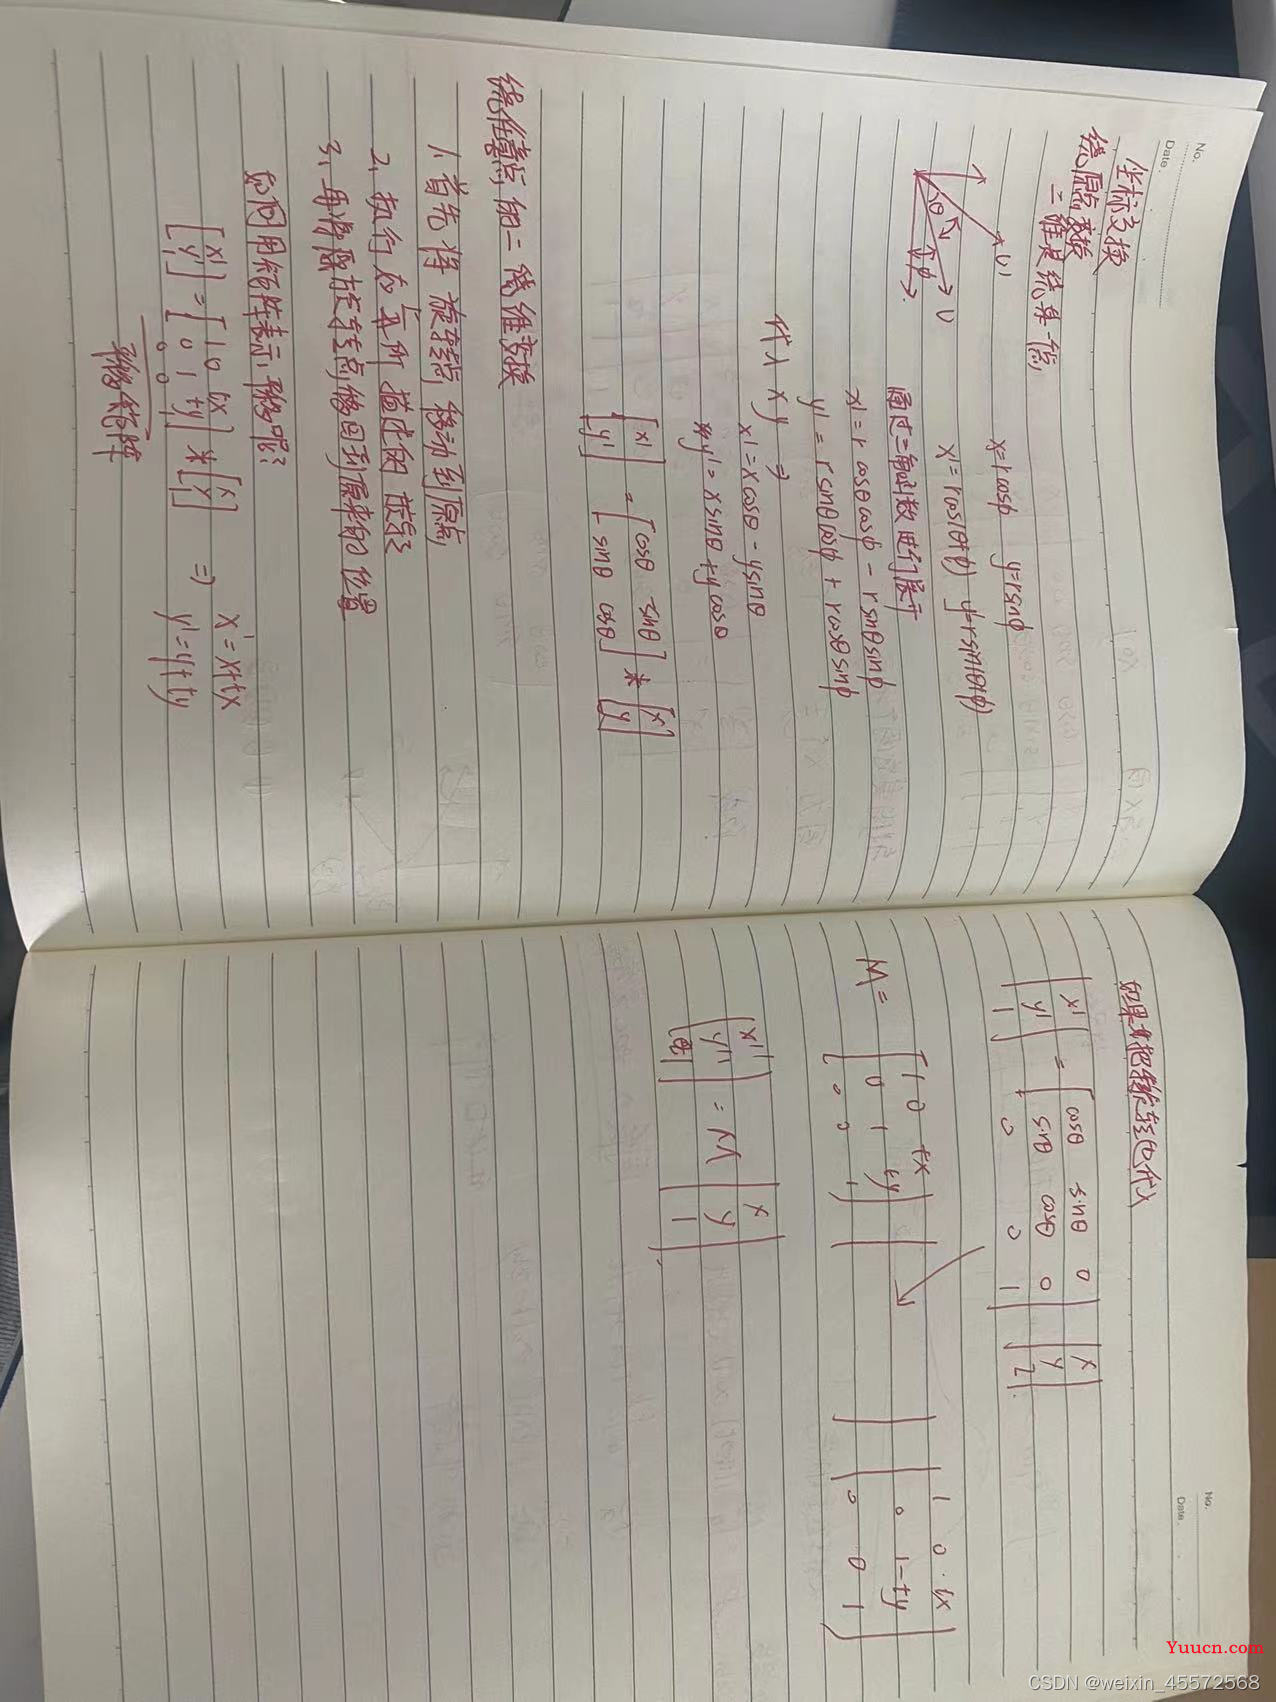 No.
Date.
坐标变换
绕原点变换
二维是绕某一点
v'
v
θ
ϕ
x=rcosϕ y=rsinϕ
x'=rcos(θ+ϕ) y'=rsin(θ+ϕ)
通过三角函数进行展开
x'=r cosθcosϕ - rsinθsinϕ
y' = rsinθcosϕ + rcosθsinϕ
代入 x y ⇒
x' = xcosθ - ysinθ
y' = xsinθ + ycosθ
[x'] = [cosθ -sinθ] * [x]
[y'] [sinθ cosθ] [y]
绕任意点的二维变换
1、首先将旋转点移动到原点
2、执行如所描述的旋转
3、再将旋转点移回到原来的位置
如何用矩阵表示平移呢?
[x'] = [1 0 tx] * [x] ⇒ x' = x+tx
[y'] [0 1 ty] [y] y' = y+ty
0 0
平移矩阵
No.
Date.
如果把旋转也代入
|x'| = |cosθ sinθ 0| |x|
|y'| |sinθ cosθ 0| |y|
|1| 0 0 1| |z|
M = [1 0 tx] | | | 1 0 -tx
0 1 ty 0 1 -ty
0 0 1 0 0 1
|x''| = M |x|
|y''| |y|
|1|
Yuucn.com
CSDN @weixin_45572568